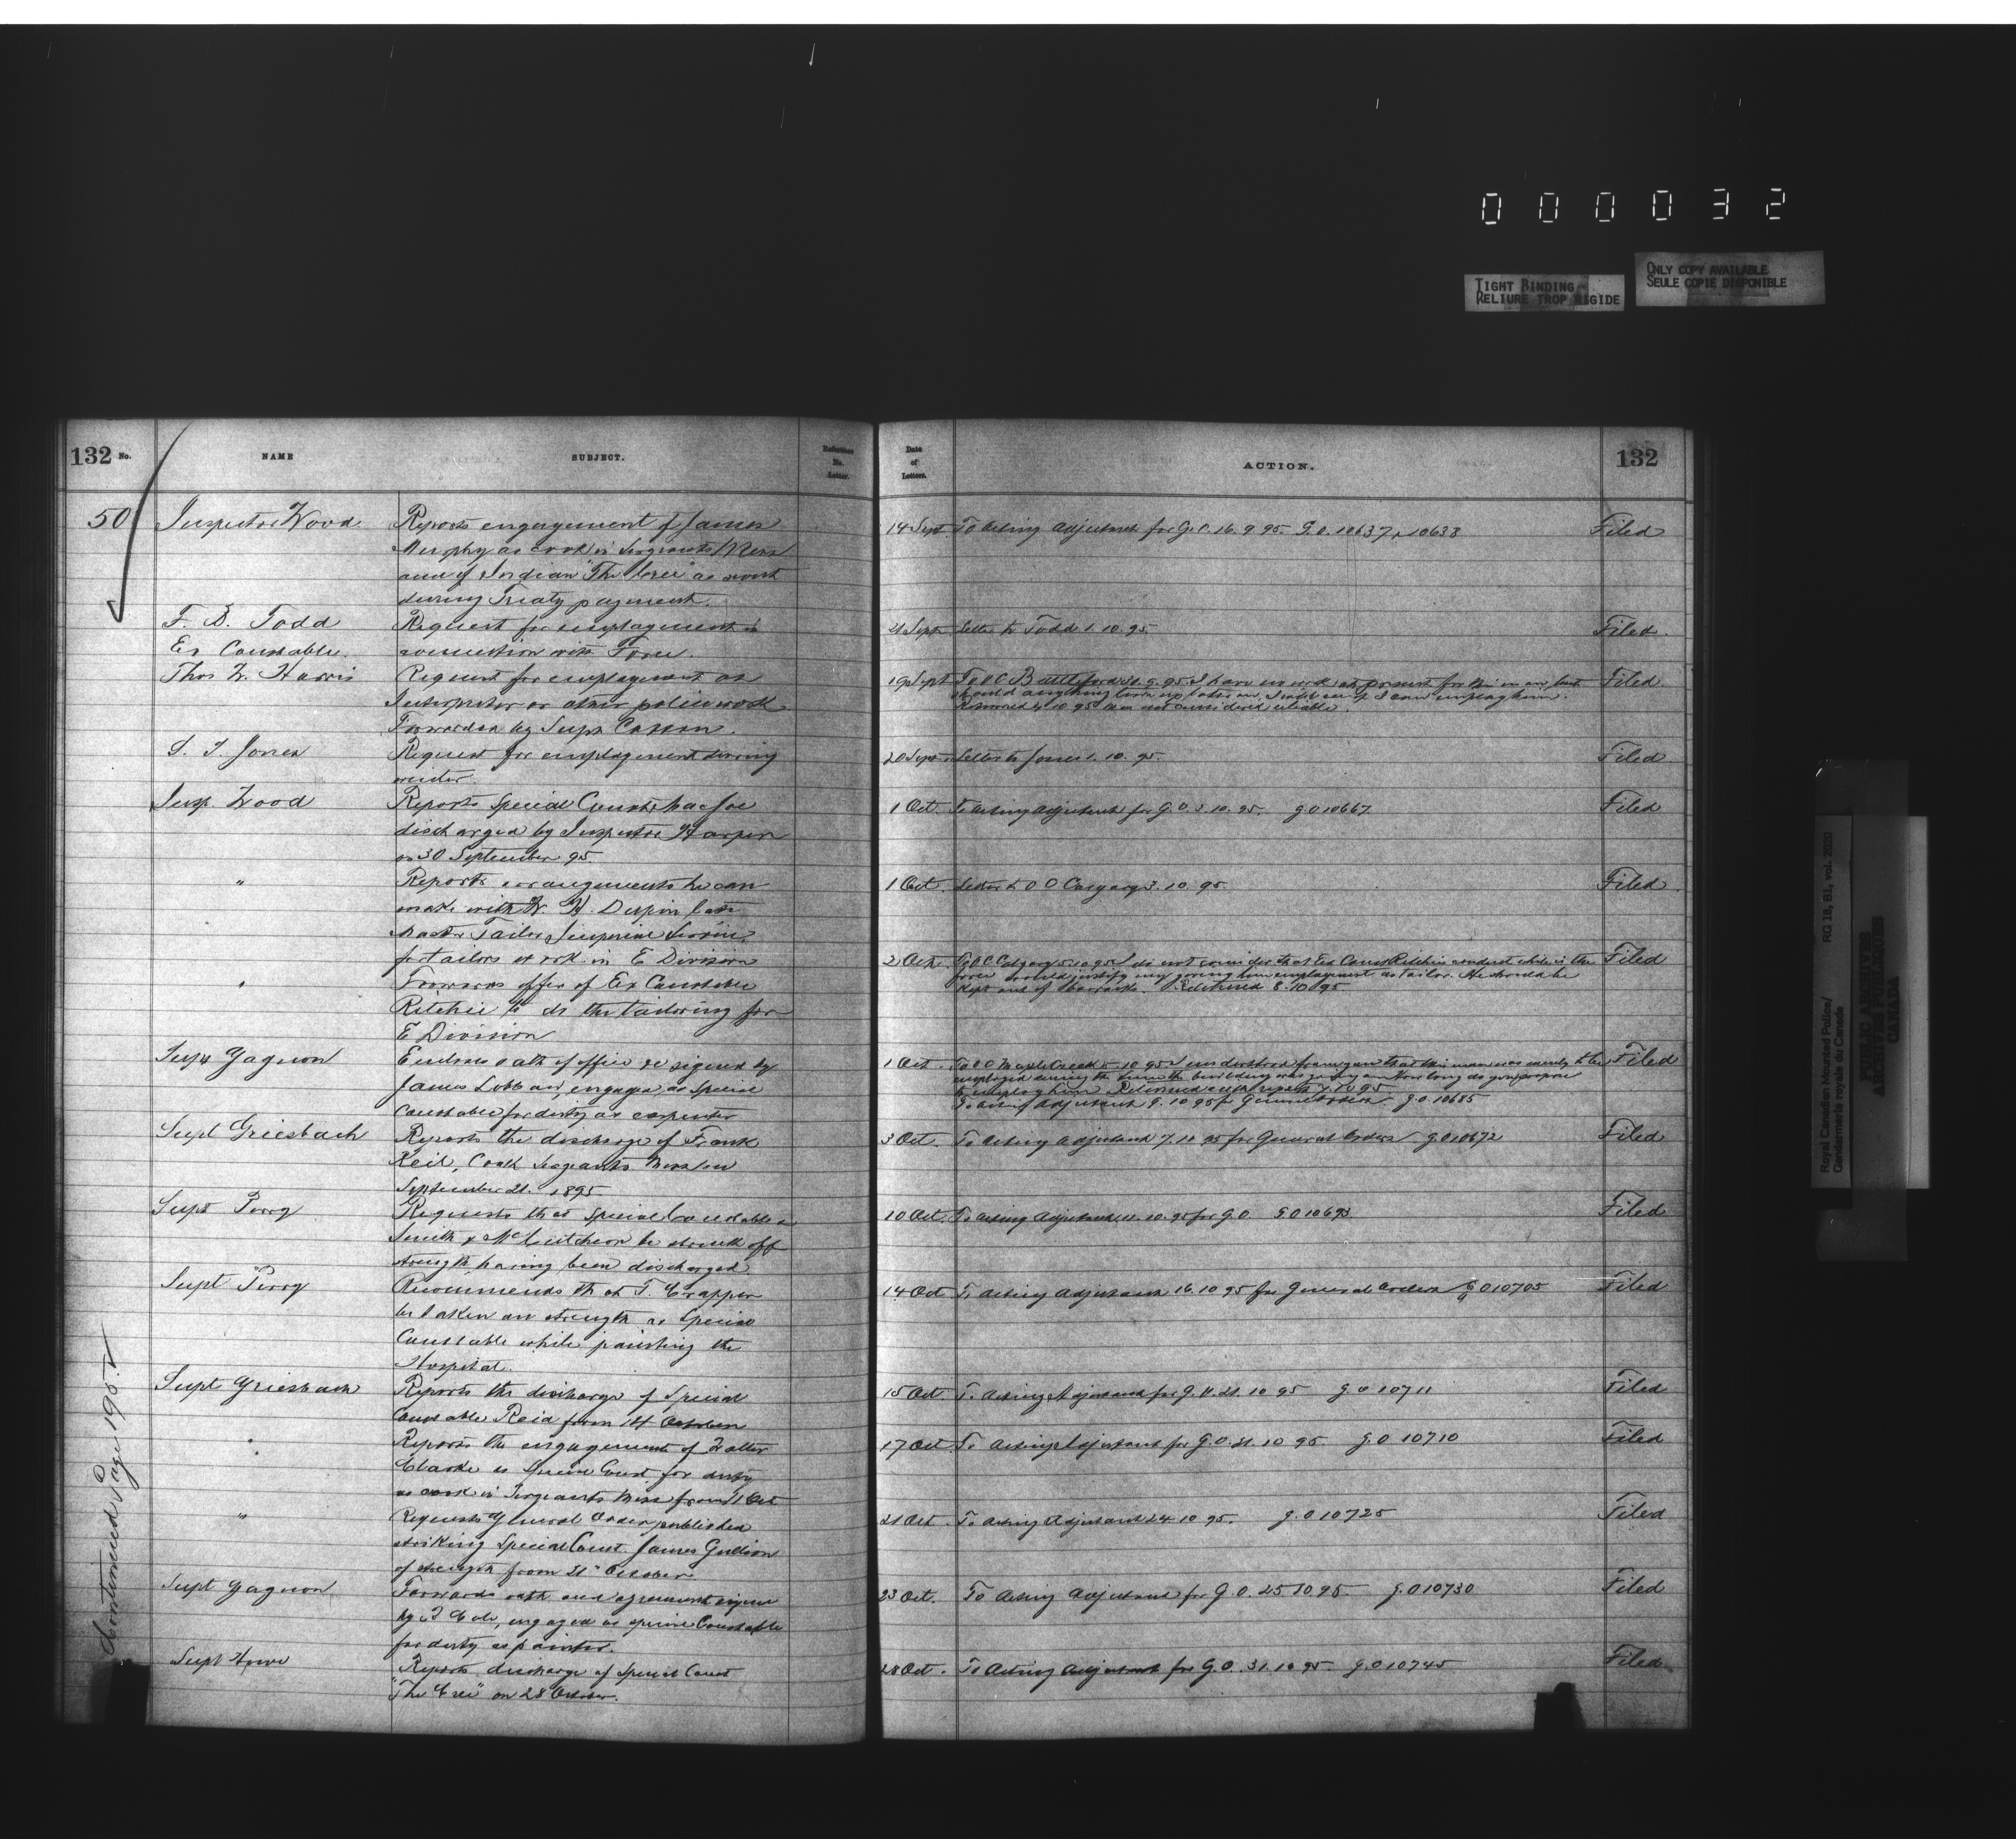 000032
TIGHT BINDING
RELIURE TROP RIGIDE
ONLY COPY AVAILABLE
SEULE COPIE DISPONIBLE
132 No.
NAME
SUBJECT.
Reference No. Letter.
Date of Letters.
ACTION.
132
50
Inspector Wood
Reports engagement of James
Murphy as cook in Sergeants Mess
and of Indian "The Cree" as scout
during Treaty payment.
14 Sept To Acting Adjutant for G.O. 16.9.95 G.O. 10637 & 10638 Filed
F. B. Todd
Ex Constable.
Request for employment in
connection with Force.
21 Sept Letter to Todd 1.10.95 Filed.
Thos W. Harris
Request for employment as
Interpreter or other police work
Forwarded by Supt Cotton.
19 Sept To O C Battleford 21.9.95 I have no work at present for him in any but
should anything turn up later on, I will see if I can employ him.
Returned 4.10.95 Man not considered reliable. Filed
S. T. Jones
Request for employment during
winter.
20 Sept Letter to Jones 1.10.95. Filed
Insp. Wood
Reports Special Const
discharged by Inspector Harper
on 30 September 95.
1 Oct. To Acting Adjutant for G.O. 3.10.95. G.O 10667 Filed
"
Reports arrangements he can
make with W. H. late
Master Tailor
for tailors work in E Division
1 Oct. Letter to O C Calgary 3.10.95. Filed.
"
Forwards offer of Ex Constable
Ritchie to do the tailoring for
E Division
2 Oct. To O C Calgary 5.10.95 I do not consider that Ex Const Ritchie's conduct while in the
force would justify my giving him employment as tailor. He should be
kept out of barracks. Returned 8.10.95 Filed
Supt Gagnon
Encloses oath of office &c signed by
James engaged as Special
Constable for duty as carpenter
1 Oct. To O C Maple Creek 5.10.95 I understood from you that this man was merely to be
employed during the time the building was going on. How long do you propose
to employ him Returned with report 7.10.95
To Acting Adjutant 9.10.95 for General Orders G.O. 10685 Filed
Supt Griesbach
Reports the discharge of Frank
Reid, Cook Sergeants Mess on
September 21. 1895.
3 Oct. To Acting Adjutant 7.10.95 for General Orders G.O 10672 Filed
Supt Perry
Requests that Special Constables
Smith & McCutcheon be struck off
strength having been discharged.
10 Oct. To Acting Adjutant 11.10.95 for G.O G.O 10693 Filed
Supt Perry
Recommends that T. Crapper
be taken on strength as Special
Constable while painting the
Hospital.
14 Oct To Acting Adjutant 16.10.95 for General Orders G.O 10705 Filed
Supt Griesbach
Reports the discharge of Special
Constable Reid from 14 October
15 Oct To Acting Adjutant for G.O. 21.10.95 G.O 10711 Filed
"
Reports the engagement of Walter
Clarke as Special Const. for duty
as cook in Sergeants Mess from 1 Oct
17 Oct To Acting Adjutant for G.O. 21.10.95 G.O 10710 Filed
"
Requests General Order published
striking Special Const. James Gullion
of strength from 21st October.
21 Oct To Acting Adjutant 24.10.95. G.O 10725 Filed
Supt Gagnon
Forwards oath and agreement signed
by Cole, engaged as special Constable
for duty as painter.
23 Oct. To Acting Adjutant for G.O. 25.10.95 G.O 10730 Filed
Supt Howe
Reports discharge of Special Const
"The Cree" on 28 October.
28 Oct. To Acting Adjutant for G.O. 31.10.95 G.O 10745 Filed
Continued Page 195
Royal Canadian Mounted Police/
Gendarmerie royale du Canada
RG 18, B1, vol. 2020
PUBLIC ARCHIVES
ARCHIVES PUBLIQUES
CANADA